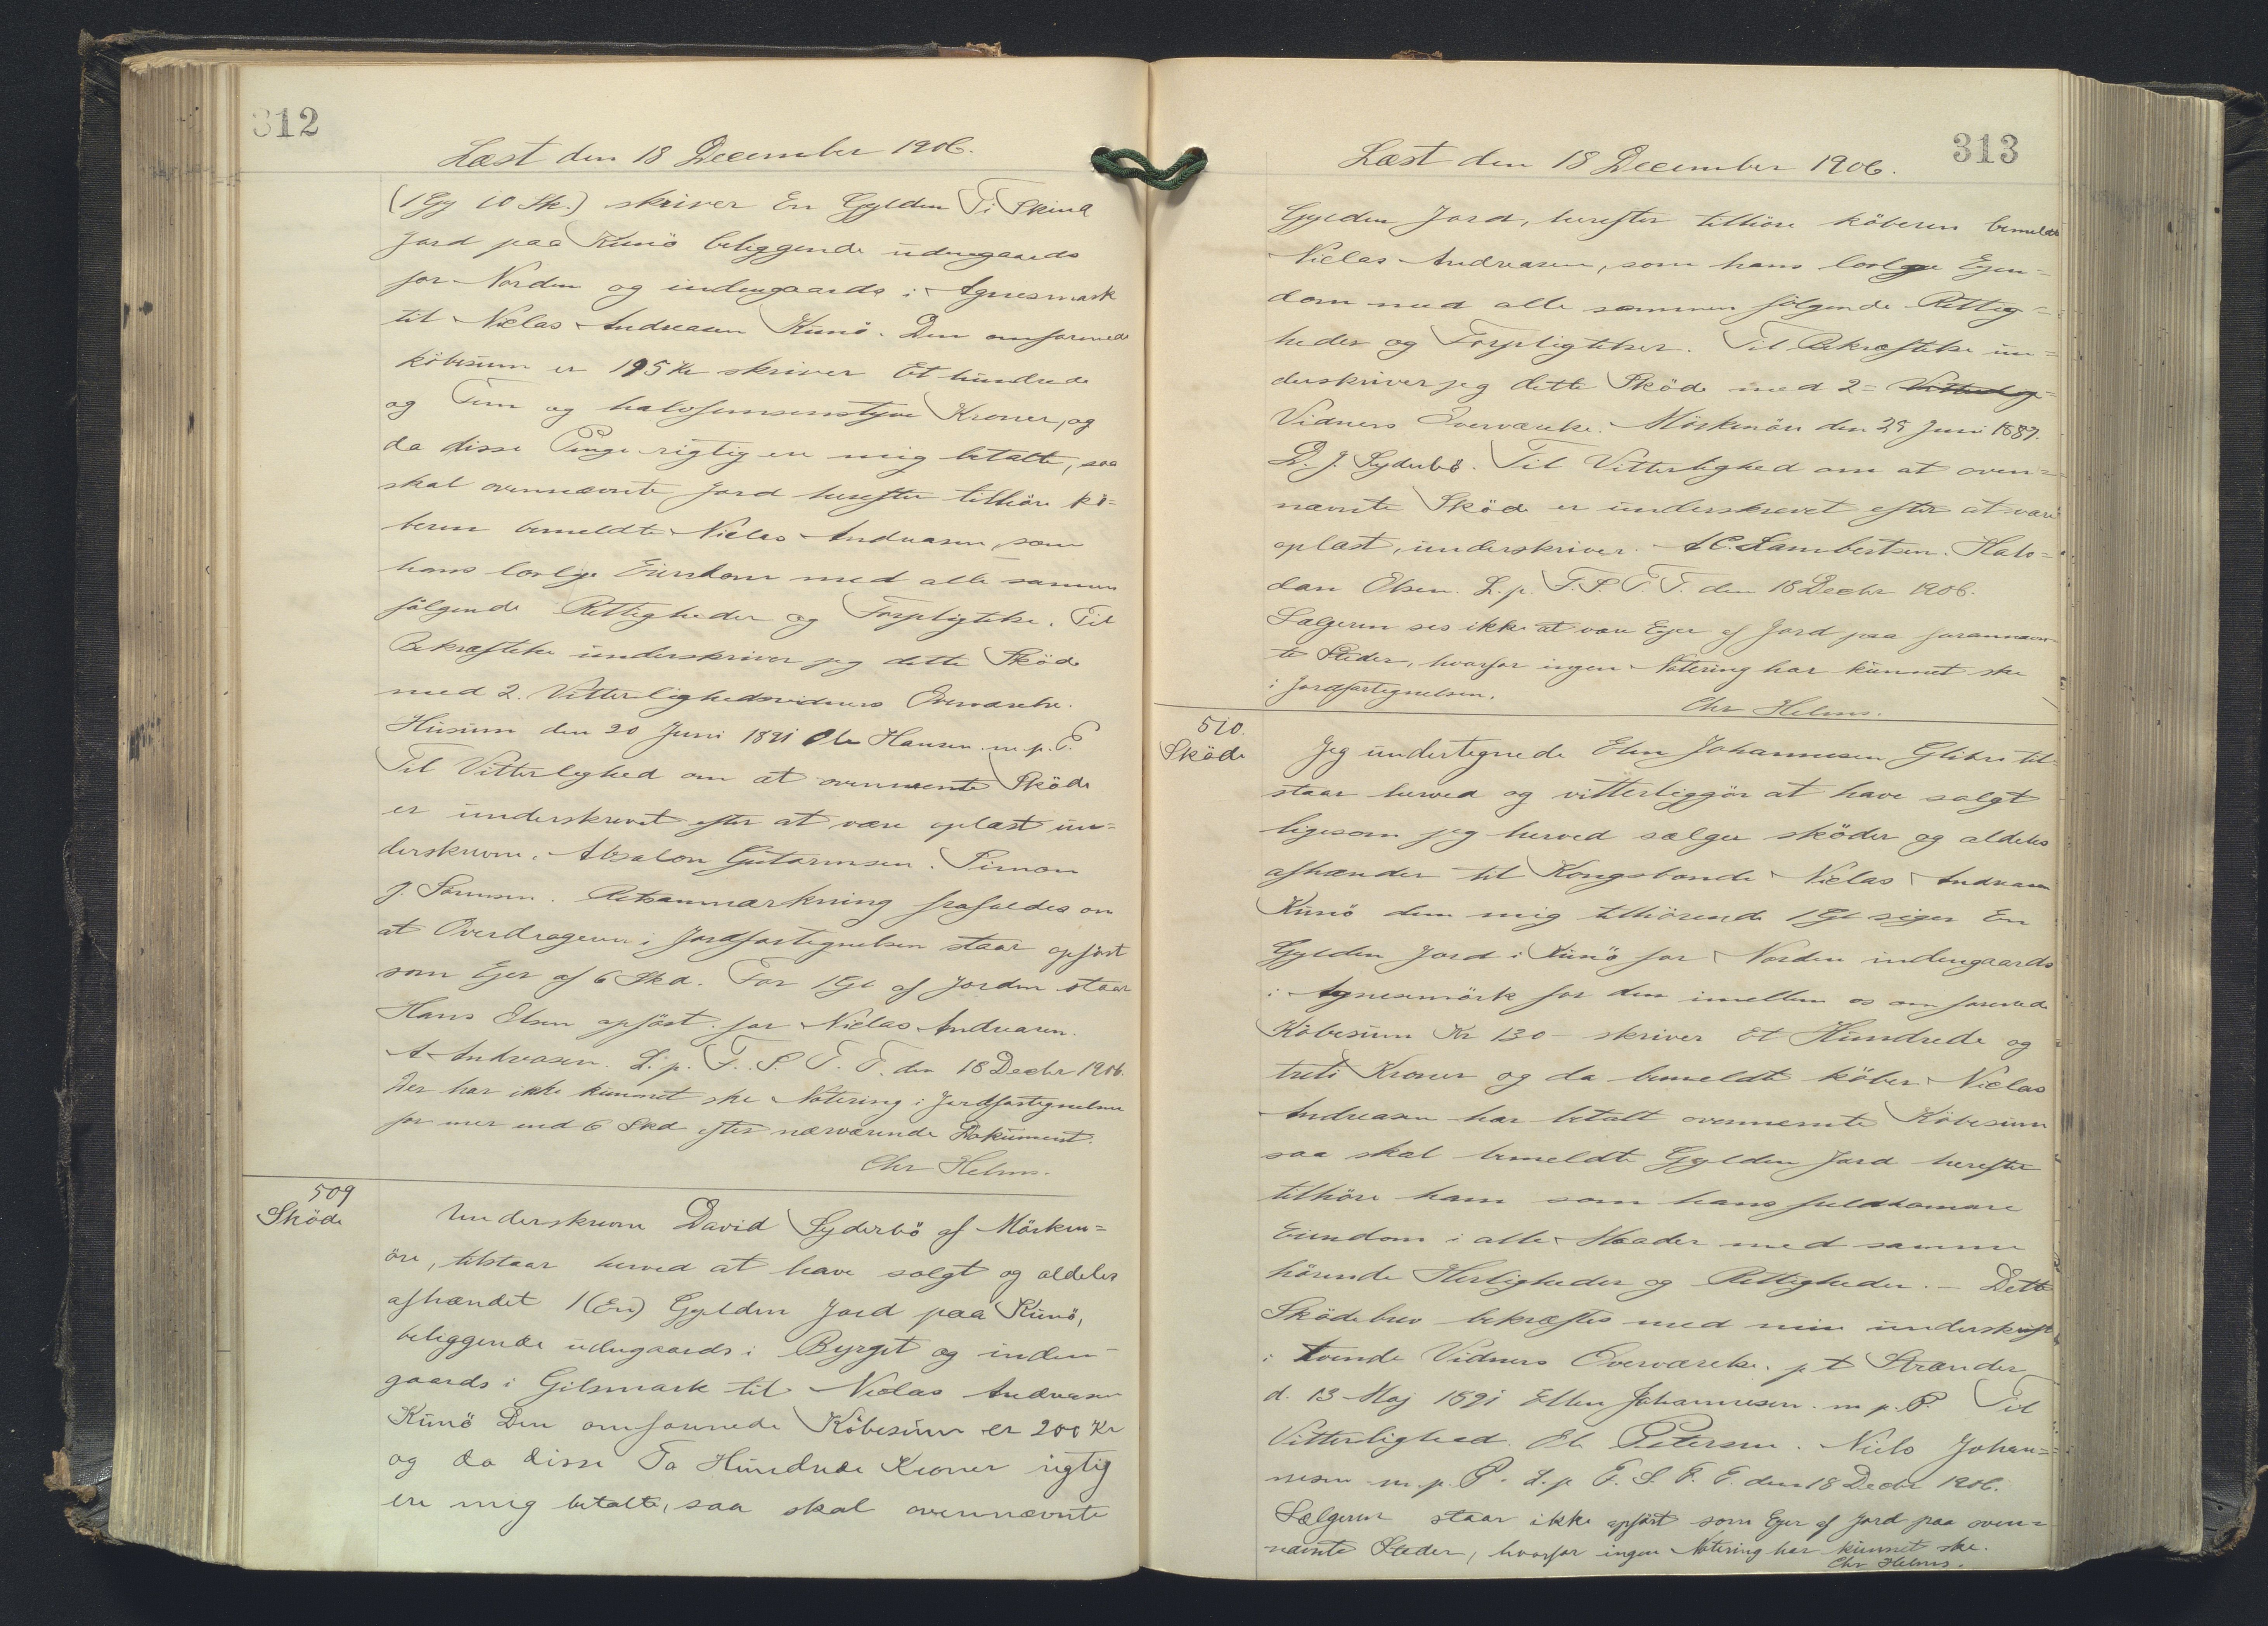 312
Læst den 18 December 1906.
(1 Gy 10 Sk.) skriver En Gylden Ti Skind
Jord paa Kunö beliggende udengaards
for Norden og indengaards i Agnesmark
til Niclas Andreasen Kunö. Den omforenede
köbesum er 195 Kr skriver Et hundrede
og Fem og halvfemsenstyve Kroner, og
da disse Penge rigtig ere mig betalte, saa
skal ovennævnte Jord herefter tilhöre kö-
beren bemeldte Niclas Andreasen, som
hans lovlige Eiendom med alle sammen
fölgende Rettigheder og Forpligtelse. Til
Bekræftelse underskriver jeg dette Sköde
med 2. Vitterlighedsvidners Overværelse.
Husum den 20 Juni 1891 Ole Hansen m. p. P.
Til Vitterlighed om at ovennævnte Sköde
er underskrevet efter at være oplæst un-
derskrevne. Absalon Guttormsen. Simon
J. Sörensen. Retsanmærkning frafaldes om
at Overdrageren i Jordfortegnelsen staar opfört
som Ejer af 6 Skd. For 1 Gl af Jorden staar
Hans Olsen opfört for Niclas Andreasen.
A. Andreasen. L. p. F. S. T. T. den 18 Decbr 1906.
Der har ikke kunnet ske Notering i Jordfortegnelsen
for mer end 6 Skd efter nærværende Dokument.
Chr Helms.
509
Sköde
Underskrevne David Syderbö af Mörken-
öre, tilstaar herved at have solgt og aldeles
afhændet 1 (En) Gylden Jord paa Kunö,
beliggende udengaards i Byrgit og inden-
gaards i Gilsmark til Niclas Andreasen
Kunö Den omforenede Köbesum er 200 Kr
og da disse To Hundrede Kroner rigtig
ere mig betalte, saa skal ovennævnte
313
Læst den 18 December 1906.
Gylden Jord, herefter tilhöre köberen bemeldte
Niclas Andreasen, som hans lovlige Ejen-
dom med alle sammen fölgende Rettig-
heder og Forpligtelser. Til Bekræftelse un-
derskriver jeg dette Sköde med 2-
Vidners Overværelse. Mörkenöre den 25 Juni 1887.
D. J. Syderbö. Til Vitterlighed om at oven-
nævnte Sköde er underskrevet efter at være
oplæst, underskriver. A C. Lambertsen. Halv-
dan Olsen. L. p. F. S. T. T. den 18 Decbr 1906.
Sælgeren ses ikke at være Ejer af Jord paa forannævn-
te Steder, hvorfor ingen Notering har kunnet ske
i Jordfortegnelsen.
Chr Helms.
510.
Sköde
Jeg undertegnede Elen Johannesen Glibre til-
staar herved og vitterliggör at have solgt
ligesom jeg herved sælger sköder og aldeles
afhænder til Kongsbonde Niclas Andreasen
Kunö den mig tilhörende 1 Gl siger En
Gylden Jord i Kunö for Norden indengaards
i Agnesmörk for den imellem os omforenede
Köbesum Kr 130 - skriver Et Hundrede og
treti Kroner og da bemeldte köber Niclas
Andreasen har betalt ovennævnte Köbesum
saa skal bemeldte Gylden Jord herefter
tilhöre ham som hans fuldkomne
Eiendom i alle Maader med samme
hörende Herligheder og Rettigheder. - Dette
Sködebrev bekræftes med min underskrift
i tvende Vidners Overværelse. p t Strænder
d. 13 Maj 1891 Ellen Johannesen m. p. P. Til
Vitterlighed. Ole Petersen. Niels Johan-
nesen m. p. P. L. p. F. S. T. T. den 18 Decbr 1906.
Sælgeren staar ikke opfört som Ejer af Jord paa oven-
nævnte Steder, hvorfor ingen Notering har kunnet ske.
Chr Helms.